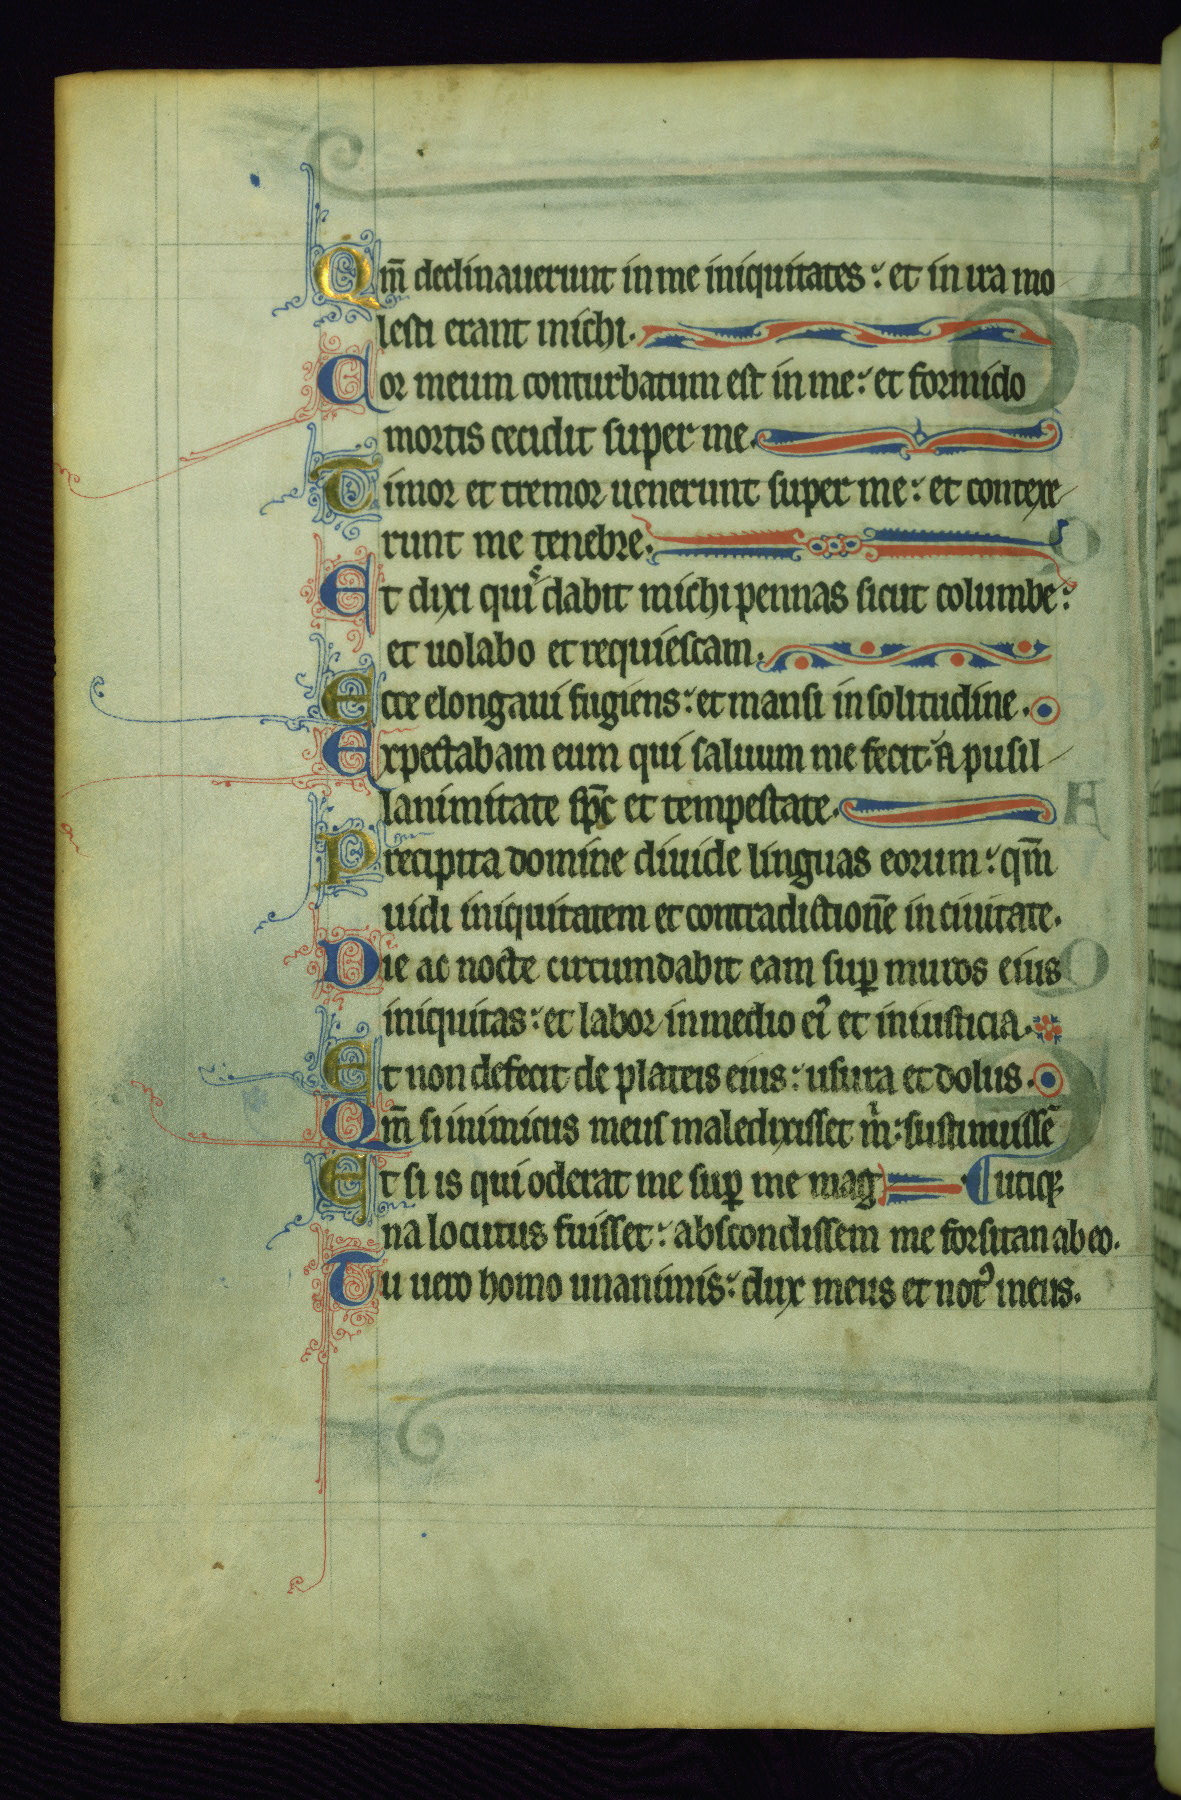 Qm̄ declinauerunt in me iniquitates: et in ira mo
lesti erant michi.
Cor meum conturbatum est in me: et formido
mortis cecidit super me.
Timor et tremor uenerunt super me: et contexe
runt me tenebre.
Et dixi quis dabit michi pennas sicut columbe:
et uolabo et requiescam.
Ecce elongaui fugiens: et mansi in solitudine.
Expectabam eum qui saluum me fecit: A pusil
lanimitate sp̄c et tempestate.
Precipita domine diuide linguas eorum: qm̄
uidi iniquitatem et contradictionē in ciuitate.
Die ac nocte circumdabit eam suꝑ muros eius
iniquitas: et labor in medio ei᾿ et iniusticia.
Et non defecit de plateis eius: usura et dolus.
Qm̄ si inimicus meus maledixisset m̄: sustinuissē
Et si is qui oderat me suꝑ me mag utiqꝫ
na locutus fuisset: abscondissem me forsitan ab eo.
Tu uero homo unanimis: dux meus et notꝰ meus.